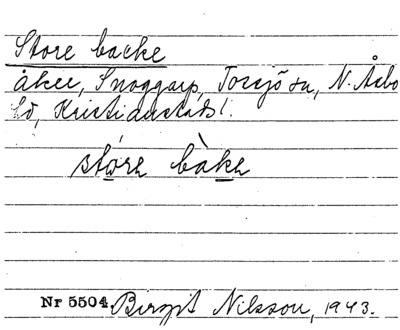 Store backe
åker, Snoggarp, Torsjö sn, N. Åsbo
hd, Kristianstads l.
stóre bàke
Nr 5504. Birgit Nilsson, 1943.